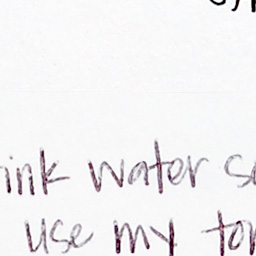 ink water so
use my ton